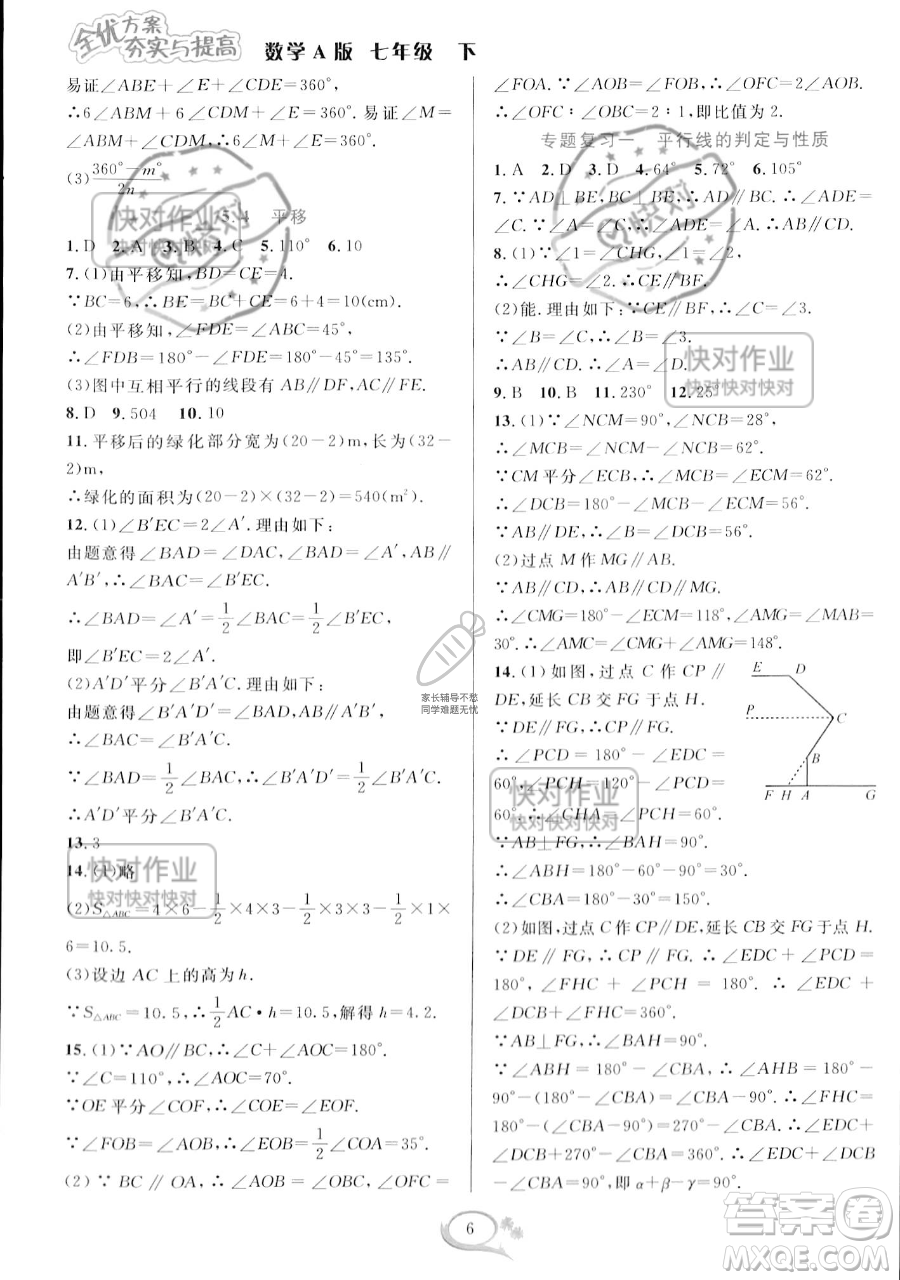 全优方案
夯实与提高
数学A版 七年级 下
易证∠ABE+∠E+∠CDE=360°,
∴6∠ABM+6∠CDM+∠E=360°. 易证∠M=
∠ABM+∠CDM,∴6∠M+∠E=360°.
(3)(360°-m°)/2n
5.4 平移
1. D 2. A 3. B 4. C 5. 110° 6. 10
7. (1)由平移知,BD=CE=4.
∵BC=6,∴BE=BC+CE=6+4=10(cm).
(2)由平移知,∠FDE=∠ABC=45°,
∴∠FDB=180°-∠FDE=135°.
(3)图中互相平行的线段有AB∥DF,AC∥FE.
8. D 9. 504 10. 10
11. 平移后的绿化部分宽为(20-2)m,长为(32-
2)m,
∴绿化的面积为(20-2)×(32-2)=540(m²).
12. (1)∠B′EC=2∠A′.理由如下:
由题意得∠BAD=∠DAC,∠BAD=∠A′,AB∥
A′B′,∴∠BAC=∠B′EC.
∴∠BAD=∠A′=1/2∠BAC=1/2∠B′EC,
即∠B′EC=2∠A′.
(2)A′D′平分∠B′A′C.理由如下:
由题意得∠B′A′D′=∠BAD,AB∥A′B′,
∴∠BAC=∠B′A′C.
∵∠BAD=1/2∠BAC,∴∠B′A′D′=1/2∠B′A′C.
∴A′D′平分∠B′A′C.
13. 3
14. (1)略
(2)S△ABC=4×6-1/2×4×3-1/2×3×3-1/2×1×
6=10.5.
(3)设边AC上的高为h.
∵S△ABC=10.5,∴1/2AC·h=10.5,解得h=4.2.
15. (1)∵AO∥BC,∴∠C+∠AOC=180°.
∵∠C=110°,∴∠AOC=70°.
∵OE平分∠COF,∴∠COE=∠EOF.
∵∠FOB=∠AOB,∴∠EOB=1/2∠COA=35°.
(2)∵BC∥OA,∴∠AOB=∠OBC,∠OFC=
∠FOA.∵∠AOB=∠FOB,∴∠OFC=2∠AOB.
∴∠OFC∶∠OBC=2∶1,即比值为2.
专题复习一 平行线的判定与性质
1. A 2. D 3. D 4. 64° 5. 72° 6. 105°
7. ∵AD⊥BE,BC⊥BE,∴AD∥BC.∴∠ADE=
∠C.∵∠A=∠C,∴∠ADE=∠A.∴AB∥CD.
8. (1)∵∠CHG=∠1,∠1=∠2,
∴∠CHG=∠2.∴CE∥BF.
(2)能.理由如下:∵CE∥BF,∴∠C=∠3.
∵∠B=∠C,∴∠B=∠3.
∴AB∥CD.∴∠A=∠D.
9. B 10. B 11. 230° 12. 25°
13. (1)∵∠NCM=90°,∠NCB=28°,
∴∠MCB=∠NCM-∠NCB=62°.
∵CM平分∠ECB,∴∠ECM=∠MCB=62°.
∴∠DCB=180°-∠MCB-∠ECM=56°.
∵AB∥DE,∴∠B=∠DCB=56°.
(2)过点M作MG∥AB.
∵AB∥CD,∴AB∥CD∥MG.
∴∠CMG=180°-∠ECM=118°,∠AMG=∠MAB=
30°.∴∠AMC=∠CMG+∠AMG=148°.
14. (1)如图,过点C作CP∥
DE,延长CB交FG于点H.
∵DE∥FG,∴CP∥FG.
∴∠PCD=180°-∠EDC=
60°,∠PCH=120°-∠PCD=
60°.∴∠CHA=∠PCH=60°.
∵AB⊥FG,∴∠BAH=90°.
∴∠ABH=180°-60°-90°=30°.
∴∠CBA=180°-∠ABH=150°.
E D
P C
B
F H A G
(2)如图,过点C作CP∥DE,延长CB交FG于点H.
∵DE∥FG,∴CP∥FG.∴∠EDC+∠PCD=
180°,∠FHC+∠PCH=180°.∴∠EDC+
∠DCB+∠FHC=360°.
∵AB⊥FG,∴∠BAH=90°.
∵∠ABH=180°-∠CBA,∴∠AHB=180°-
90°-(180°-∠CBA)=∠CBA-90°.∴∠FHC=
180°-(∠CBA-90°)=270°-∠CBA.∴∠EDC+
∠DCB+270°-∠CBA=360°.∴∠EDC+∠DCB-
∠CBA=90°,即α+β-γ=90°.
6
快对作业
快对快对快对
快对作业
快对快对快对
快对作业
快对快对快对
快对作业
快对快对快对
快对
家长辅导不愁
同学难题无忧
答案圈
MXQE.COM